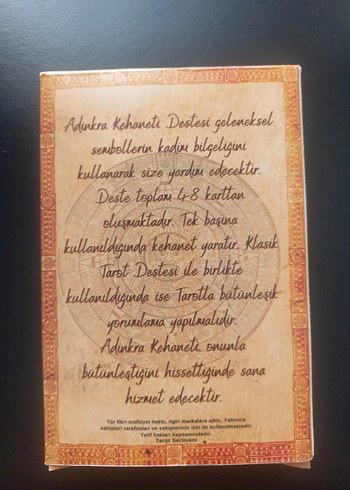 Adinkra Kehaneti Destesi geleneksel
sembollerin kadim bilgeliğini
kullanarak size yardım edecektir.
Deste toplam 48 karttan
oluşmaktadır. Tek başına
kullanıldığında kehanet yaratır. Klasik
Tarot Destesi ile birlikte
kullanıldığında ise Tarotla bütünleşik
yorumlama yapılmalıdır.
Adinkra Kehaneti, onunla
bütünleştiğini hissettiğinde sana
hizmet edecektir.
Tür fikri mülkiyet hakkı, ilgili markalara aittir. Yalnızca
sahipleri tarafından ve sahiplerinin izni ile kullanılmaktadır.
Telif hakları kapsamındadır.
Tarot Serüveni